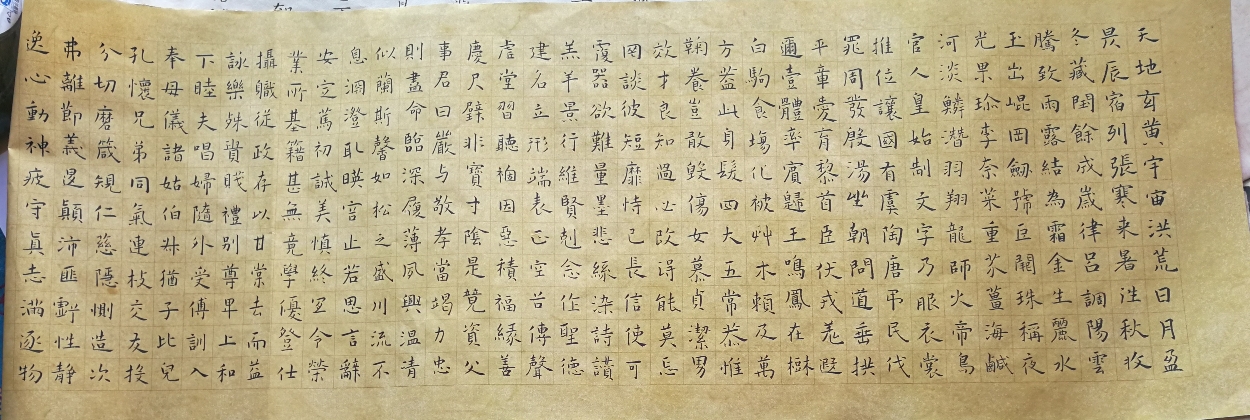 天地玄黃宇宙洪荒日月盈
昃辰宿列張寒来暑往秋收
冬藏閏餘成歲律呂調陽雲
騰致雨露結為霜金生麗水
玉出崐岡劒號巨闕珠稱夜
光果珍李柰菜重芥薑海鹹
河淡鱗潛羽翔龍師火帝鳥
官人皇始制文字乃服衣裳
推位讓國有虞陶唐弔民伐
罪周發殷湯坐朝問道垂拱
平章愛育黎首臣伏戎羌遐
邇壹體率賓歸王鳴鳳在樹
白駒食場化被艸木賴及萬
方蓋此身髮四大五常恭惟
鞠養豈敢毀傷女慕貞潔男
效才良知過必改得能莫忘
罔談彼短靡恃己長信使可
覆器欲難量墨悲絲染詩讚
羔羊景行維賢剋念作聖德
建名立形端表正空谷傳聲
虛堂習聽禍因惡積福緣善
慶尺璧非寶寸陰是競資父
事君曰嚴与敬孝當竭力忠
則盡命臨深履薄夙興温凊
似蘭斯馨如松之盛川流不
息淵澄取暎容止若思言辭
安定篤初誠美慎終宜令榮
業所基籍甚無竟學優登仕
攝職從政存以甘棠去而益
詠樂殊貴賤禮別尊卑上和
下睦夫唱婦隨外受傅訓入
奉母儀諸姑伯叔猶子比兒
孔懷兄弟同氣連枝交友投
分切磨箴規仁慈隱惻造次
弗離節義退顛沛匪虧性静
逸心動神疲守眞志滿逐物